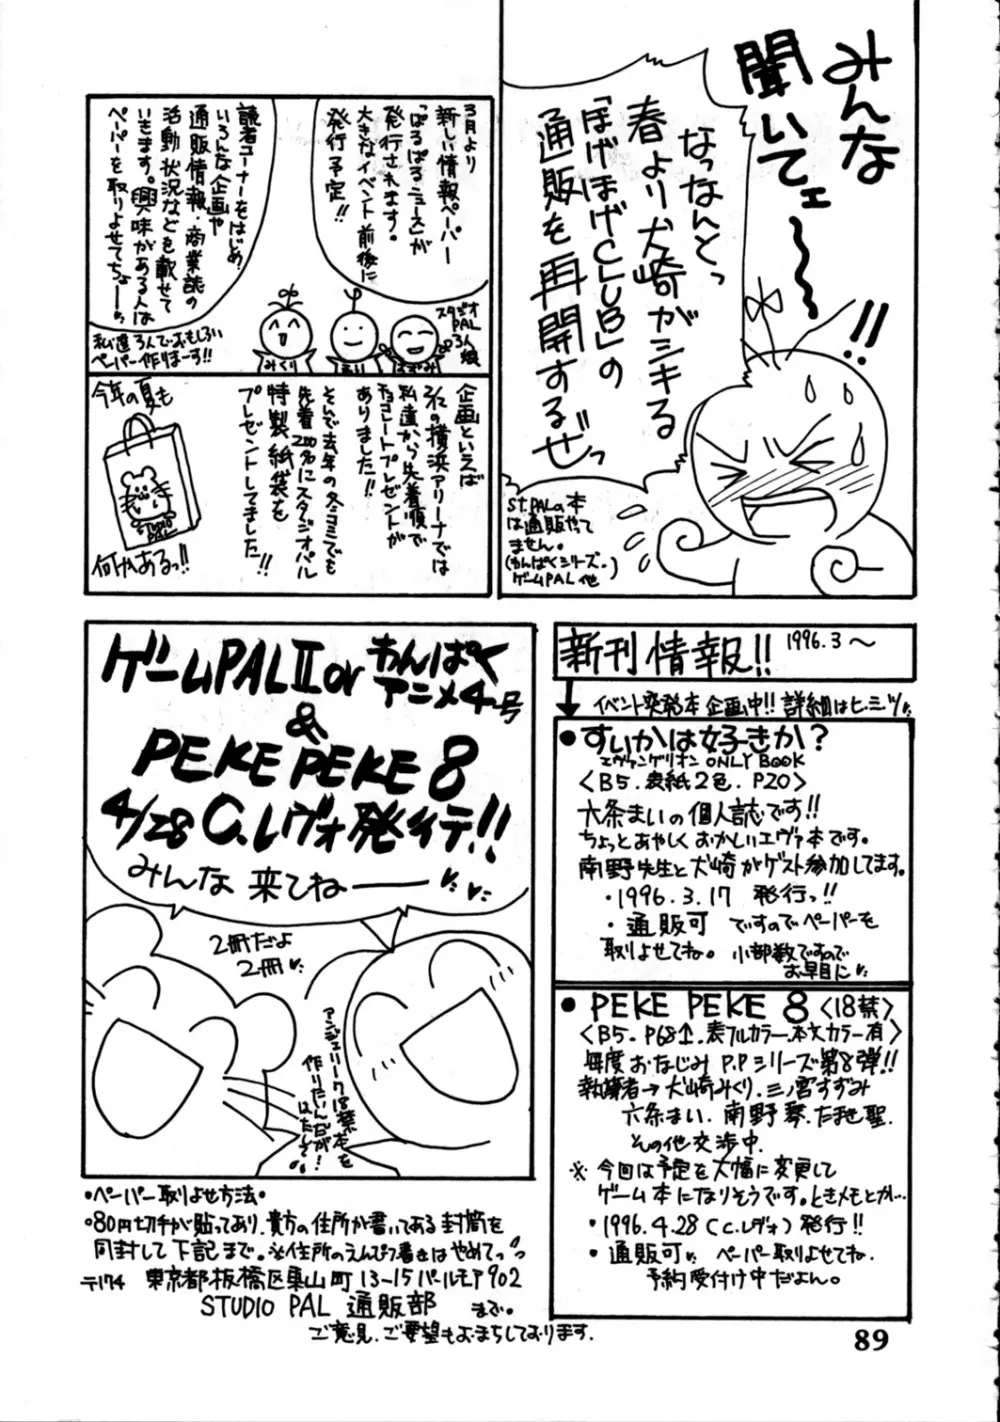 みんな
聞いてェ〜〜
!!
なっなんとっ
春より犬崎がシキる
「ほげほげCLUB」の
通販を再開するぜっ
ST.PALの本
は通販やって
ません。
(わんぱくシリーズ。
ゲームPAL他)
3月より
新しい情報ペーパー
「ぱるぱるニュース」が
発行されます。
大きなイベント前後に
発行予定!!
読者コーナーをはじめ、
いろんな企画や
通販情報・商業誌の
活動状況などを載せて
いきます。興味がある人は
ペーパーを取りよせてちょーっ
スタジオ
PAL
3人娘
みくり
私達3人で…おもしろい
ペーパー作りまーす!!
企画といえば
3/2の横浜アリーナでは
私達から先着順で
チョコレートプレゼントが
ありましたー!!
そんで去年の冬コミでも
先着200名にスタジオパル
特製紙袋を
プレゼントしてました!!
今年の夏も
STUDIO
PAL
何かあるっ!!
ゲームPALⅡor わんぱく
アニメ4号
&
PEKE PEKE 8
4/28 C.レヴォ発行デ!!
みんな 来てねー
2冊だよ
2冊
アンジェリーク18禁本を
作りたいんだが!
はたして。
新刊情報!! 1996.3〜
イベント突発本企画中!! 詳細はヒ・ミ・ツ
●すいかは好きか?
エヴァンゲリオン ONLY BOOK
<B5.表紙2色.P20>
六条まいの個人誌です!!
ちょっとあやしくおかしいエヴァ本です。
南野先生と犬崎がゲスト参加してます。
・1996.3.17 発行っ!!
・通販可 ですのでペーパーを
取りよせてね。小部数ですので
お早目に
●PEKE PEKE 8 <18禁>
<B5.P68↑.表フルカラー.本文カラー有>
毎度おなじみP.Pシリーズ第8弾!!
執筆者→犬崎みくり.三ノ宮すずみ
六条まい.南野琴.たませ聖.
その他交渉中.
※今回は予定を大幅に変更して
ゲーム本になりそうです。ときメモとか…
・1996.4.28(C.レヴォ)発行!!
・通販可 ペーパー取りよせてね.
予約受付け中だよん。
・ペーパー取りよせ方法・
・80円切手が貼ってあり.貴方の住所が書いてある封筒を
同封して下記まで。※住所のえんぴつ書きはやめてっ
〒174 東京都板橋区東山町13-15パールモア902
STUDIO PAL 通販部 まで。
ご意見.ご要望もおまちしております.
89